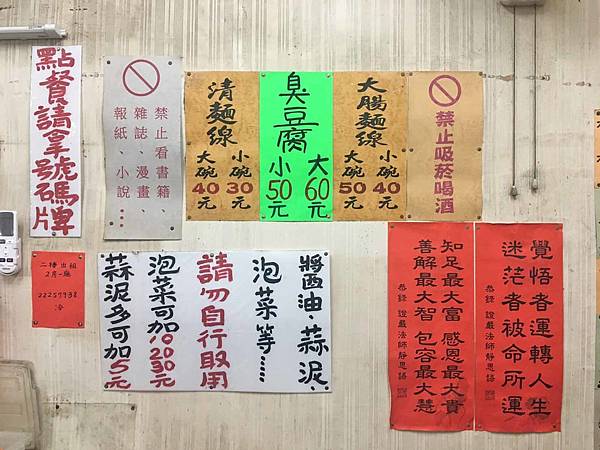 點餐請拿號碼牌
禁止看書籍、
雜誌、漫畫、
報紙、小說…
清麵線
小碗30元
大碗40元
臭豆腐
大60元
小50元
大腸麵線
小碗40元
大碗50元
禁止吸菸喝酒
二樓出租
22257938
醬油、蒜泥、
泡菜等……
請勿自行取用
泡菜可加10 20 30元
蒜泥多可加5元
覺悟者運轉人生
迷茫者被命所運
恭錄 證嚴法師靜思語
知足最大富 感恩最大貴
善解最大智 包容最大慧
恭錄 證嚴法師靜思語